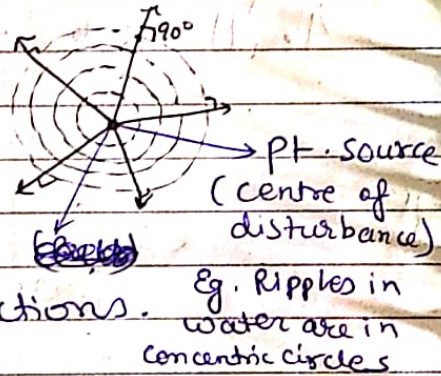 90°
Pt. source
(centre of
disturbance)
ctions.
Eg. Ripples in
water are in
concentric circles